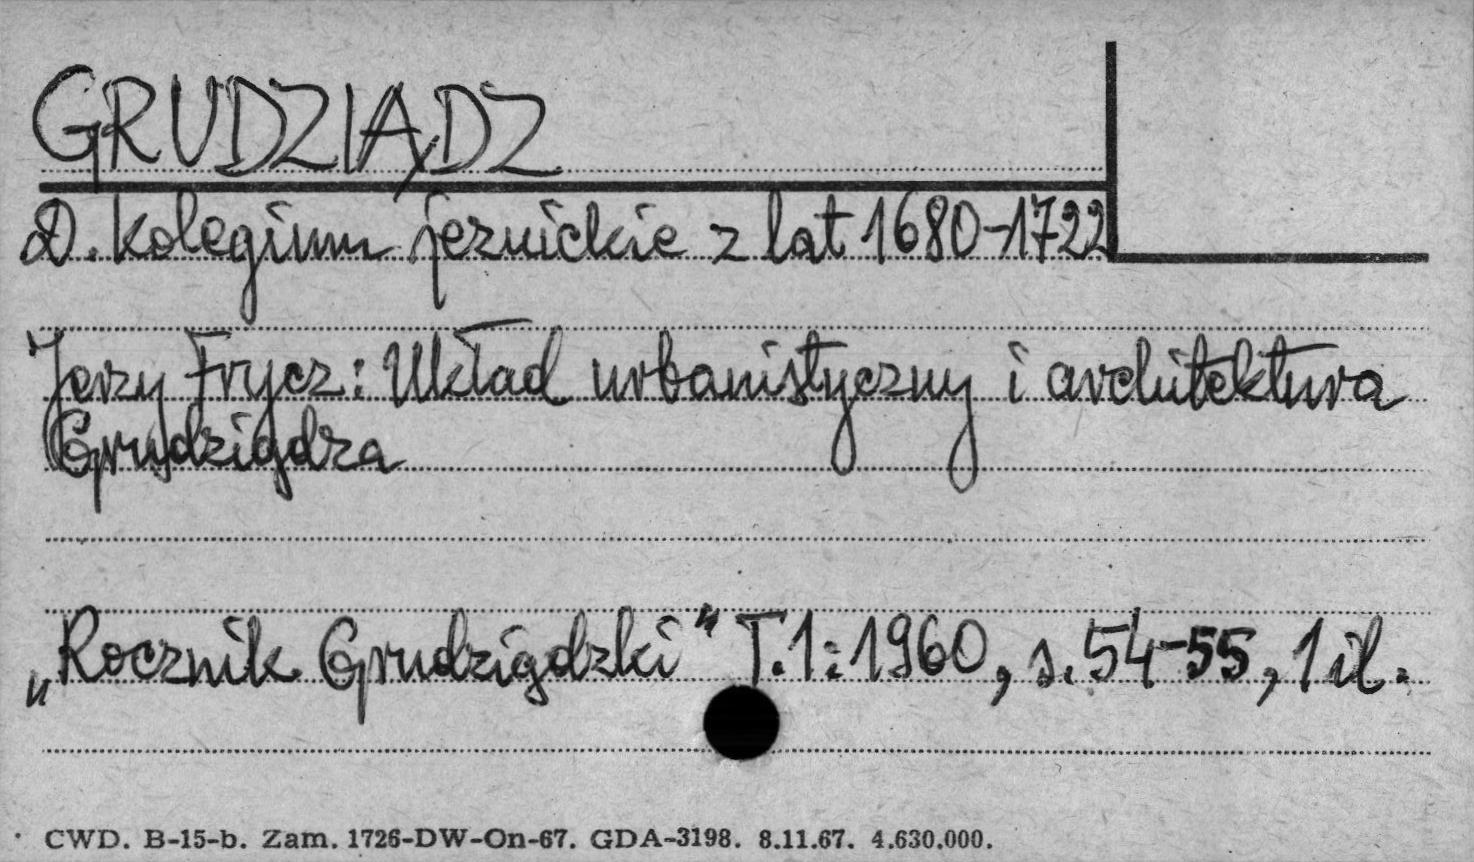 GRUDZIĄDZ
D. kolegium jezuickie z lat 1680-1722
Jerzy Frycz: Układ urbanistyczny i architektura
Grudziądza
„Rocznik Grudziądzki" T.1: 1960, s. 54-55, 1 il.
CWD. B-15-b. Zam. 1726-DW-On-67. GDA-3198. 8.11.67. 4.630.000.